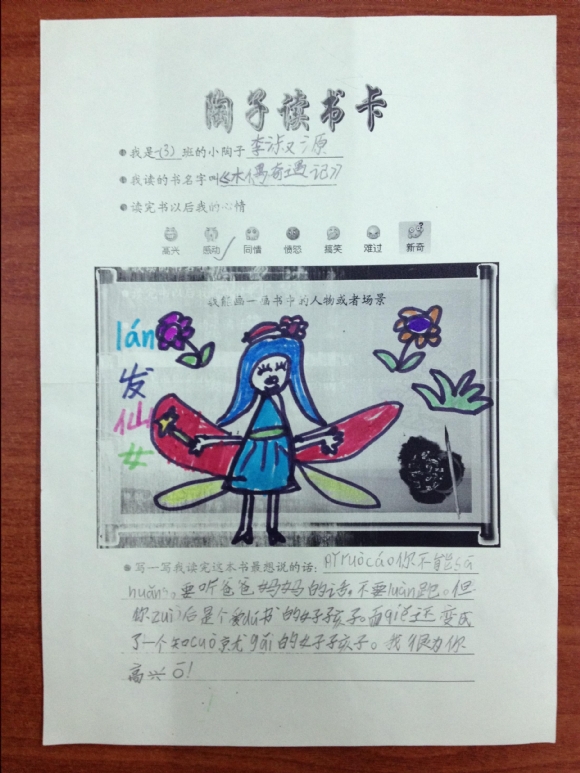 陶子读书卡
我是一(3)班的小陶子李淑源
我读的书名字叫《木偶奇遇记》
读完书以后我的心情
高兴 感动 同情 愤怒 搞笑 难过 新奇
我能画一画书中的人物或者场景
lán
发
仙
女
写一写我读完这本书最想说的话:你不能sā
huǎng。要听爸爸妈妈的话,不要luàn跑。但
你zuì后是个爱dú书的好孩子。而qiě还变成
了一个知cuò就gǎi的好孩子。我很为你
高兴ō!